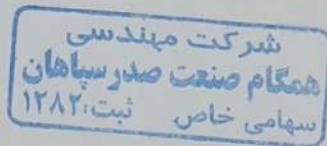 شرکت مهندسی
همگام صنعت صدر سپاهان
سهامی خاص ثبت:۱۲۸۲